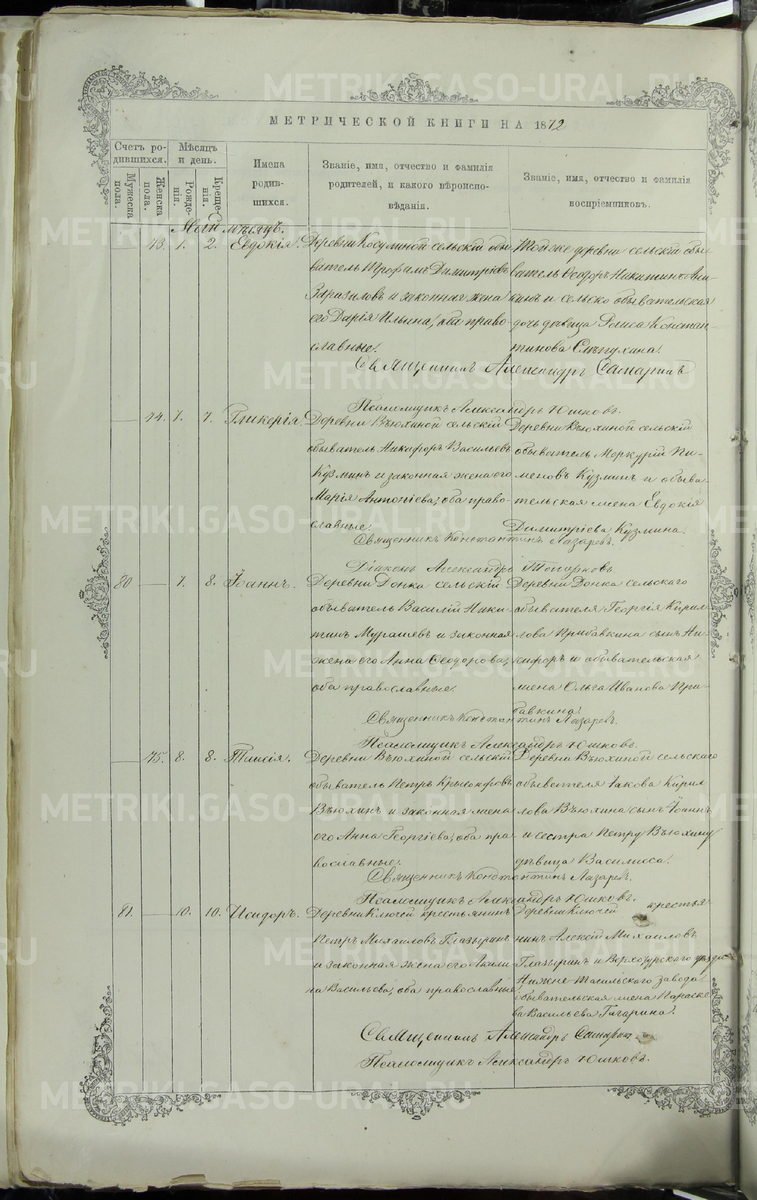 МЕТРИЧЕСКОЙ КНИГИ НА 1872
Счетъ родившихся.
Мужеска пола.
Женска пола.
Мѣсяцъ и день.
Рожденія.
Крещенія.
Имена родившихся.
Званіе, имя, отчество и фамилія родителей, и какого вѣроисповѣданія.
Званіе, имя, отчество и фамилія воспріемниковъ.
Май мѣсяцъ.
73. 1. 2. Евдокія.
Деревни Косулиной сельскій обы-
ватель Трофимъ Димитріевъ
и законная жена
его Дарія Ильина, оба право-
славные.
Той же деревни сельскій обы-
ватель Ѳеодоръ Никитинъ
и сельско обывательская
дочь дѣвица Раиса Констан-
тинова Слѣпухина.
Священникъ Александръ
Псаломщикъ Александръ Юшковъ.
74. 7. 7. Гликерія.
Деревни Вьюхиной сельскій
обыватель Никифоръ Васильевъ
Кузминъ и законная жена его
Марія Антоніева, оба право-
славные.
Деревни Вьюхиной сельскій
обыватель Меркурій Пи-
меновъ Кузминъ и обыва-
тельская жена Евдокія
Димитріева Кузмина.
Священникъ Константинъ Лазаревъ.
Діаконъ Александръ
80 7. 8. Іоаннъ.
Деревни Донка сельскій
обыватель Василій Ники-
тинъ Мурашевъ и законная
жена его Анна Ѳеодорова,
оба православные.
Деревни Донка сельскаго
обывателя Георгія Кирил-
лова Прибавкина сынъ Ни-
кифоръ и обывательская
жена Ольга Иванова При-
бавкина.
Священникъ Константинъ Лазаревъ.
Псаломщикъ Александръ Юшковъ.
75. 8. 8. Таисія.
Деревни Вьюхиной сельскій
обыватель Петръ
Вьюхинъ и законная жена
его Анна Георгіева, оба пра-
вославные.
Деревни Вьюхиной сельскаго
обывателя Іакова Кирил-
лова Вьюхина сынъ Іоаннъ
и сестра Петру Вьюхину
дѣвица Васса.
Священникъ Константинъ Лазаревъ.
Псаломщикъ Александръ Юшковъ.
81. 10. 10. Исидоръ.
Деревни Ключей крестьянинъ
Петръ Михаиловъ Глазыринъ
и законная жена его Акили-
на Васильева, оба православные.
Деревни Ключей крестья-
нинъ Алексій Михаиловъ
Глазыринъ и Верхотурскаго уѣзда
Нижне-Тагильскаго завода
обывательская жена Параске-
ва Васильева Гагарина.
Священникъ Александръ
Псаломщикъ Александръ Юшковъ.
METRIKI.GASO-URAL.RU